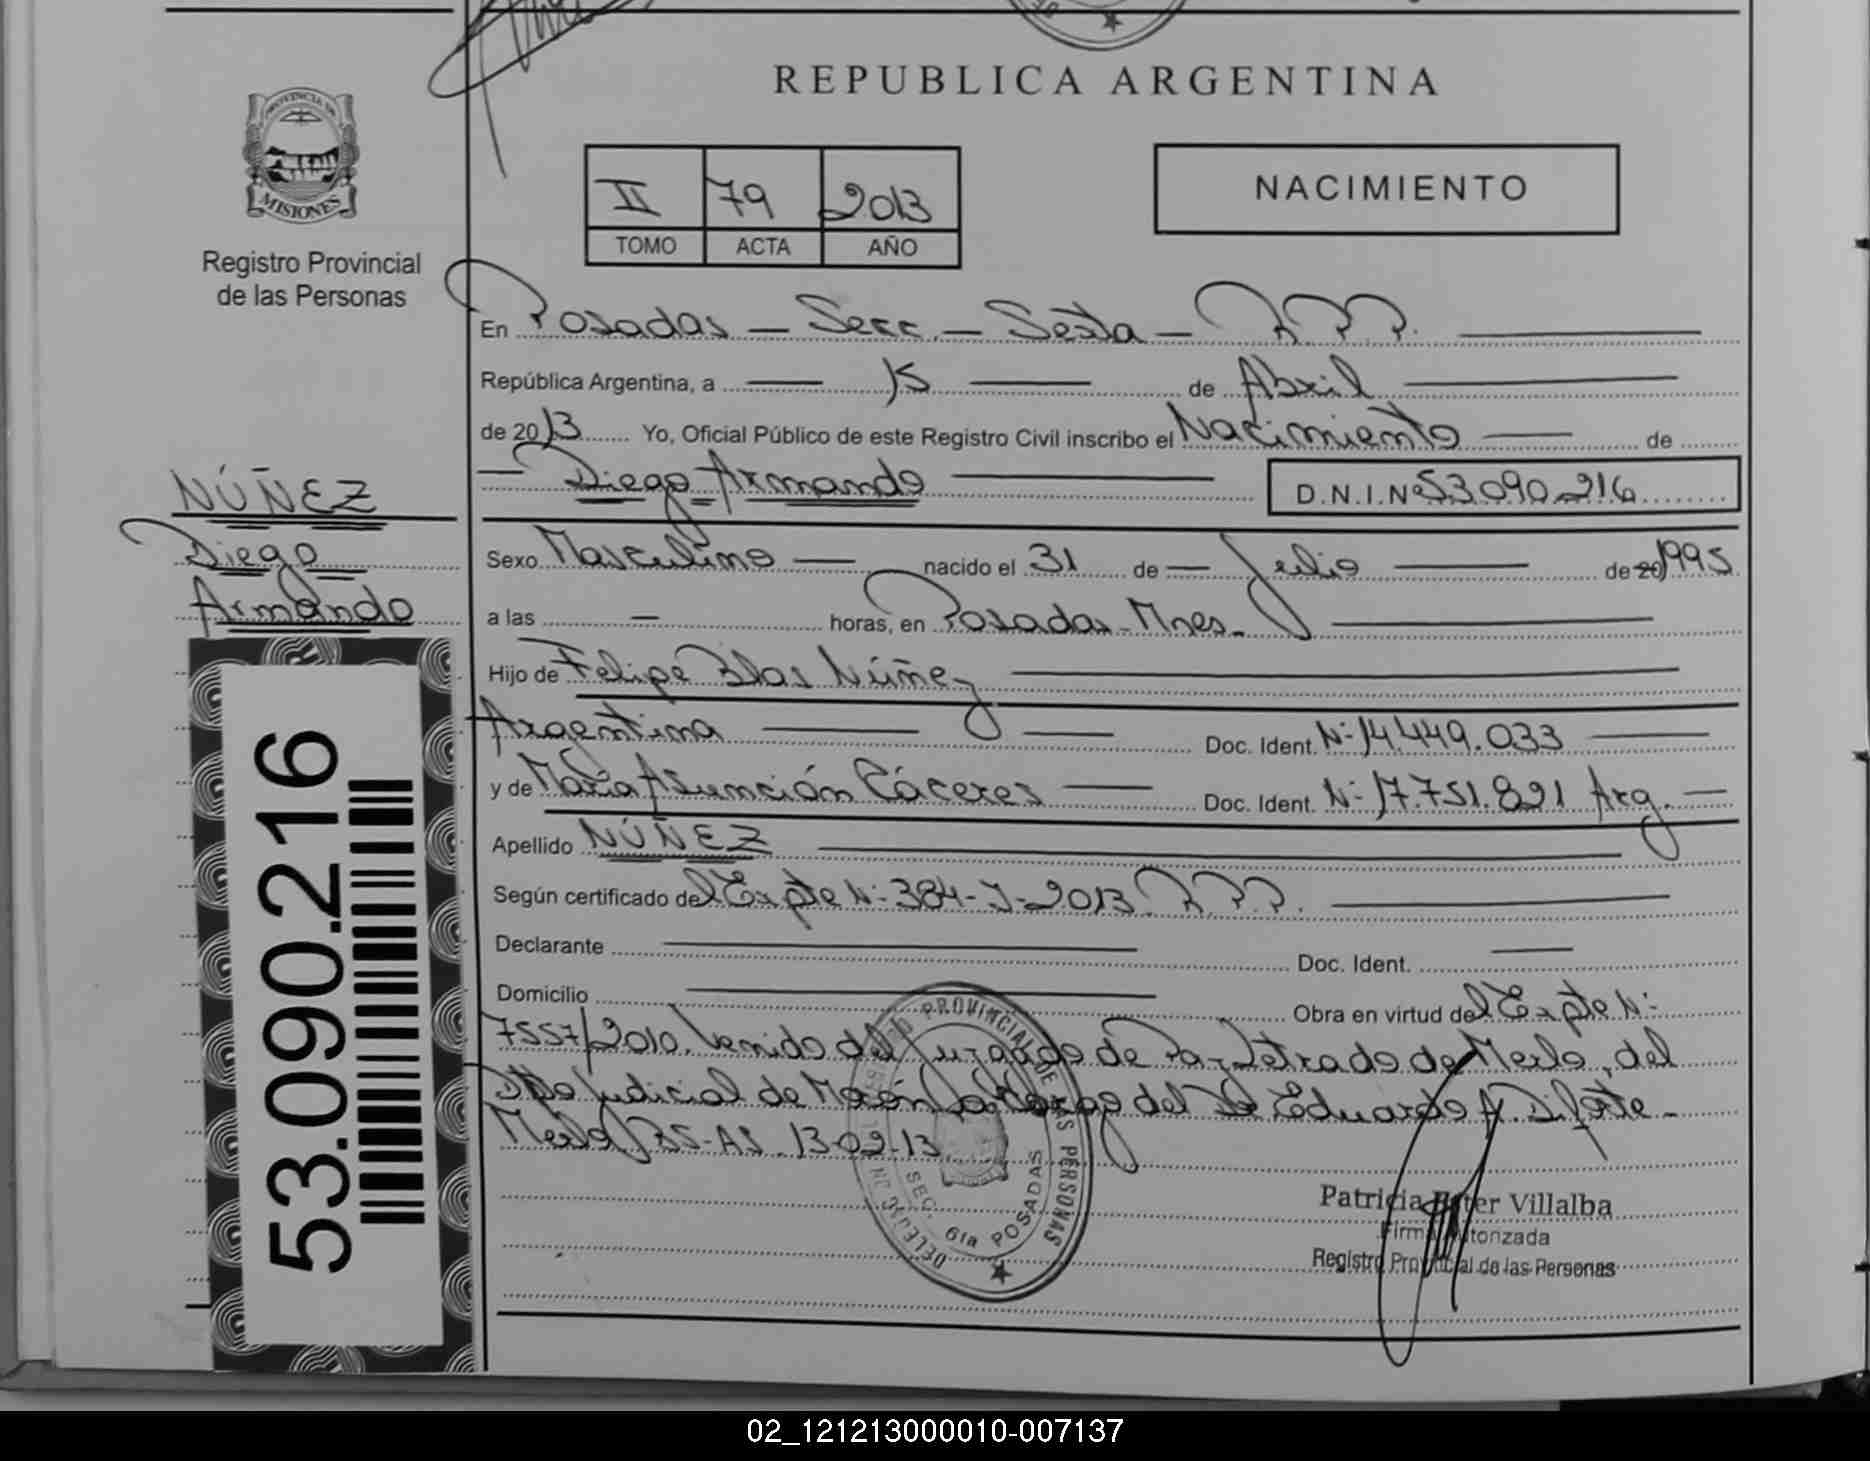 REPUBLICA ARGENTINA
PROVINCIA DE
MISIONES
Registro Provincial
de las Personas
II 79 2013
TOMO ACTA AÑO
NACIMIENTO
En Posadas - Secc. - Sexta - R.P.P.
República Argentina, a 15 de Abril
de 2013 Yo, Oficial Público de este Registro Civil inscribo el Nacimiento de
Diego Armando D.N.I. Nº 53.090.216
NÚÑEZ
Diego
Armando
Sexo Masculino nacido el 31 de Julio de 20 1995
a las - horas, en Posadas - Mnes.
Hijo de Felipe Blas Núñez
Argentina Doc. Ident. Nº 14.449.033
y de María Asunción Cáceres Doc. Ident. Nº 17.751.821 Arg.
Apellido NÚÑEZ
Según certificado del Expte Nº 384-J-2013 R.P.P.
Declarante Doc. Ident.
Domicilio Obra en virtud del Expte Nº
7557/2010. Venido del Juzgado de Paz Letrado de Merlo, del
Judicial de Morón a cargo del Eduardo A.
Merlo, 13-02-13
53.090.216
PROVINCIAL DE LAS PERSONAS
SEC. 6ta POSADAS
Patricia Ester Villalba
Firma Autorizada
Registro Provincial de las Personas
02_121213000010-007137